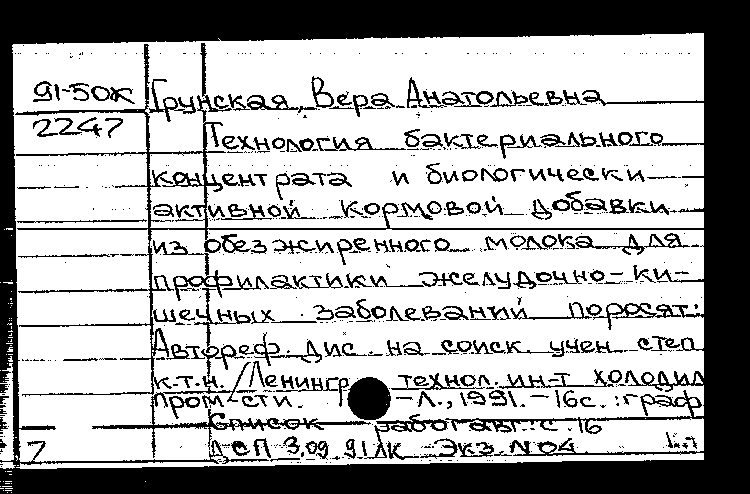 91-50ж Грунская, Вера Анатольевна
2247 Технология бактериального
концентрата и биологически
активной кормовой добавки
из обезжиренного молока для
профилактики желудочно-ки-
шечных заболеваний поросят:
Автореф. дис. на соиск. учен. степ.
к.т.н. / Ленингр. технол. ин-т холодил.
пром-сти. -Л., 1991. - 16с. : граф
Список работ авт.: с. 16
7 ДСП 3.09.91 ЛК Экз. N04